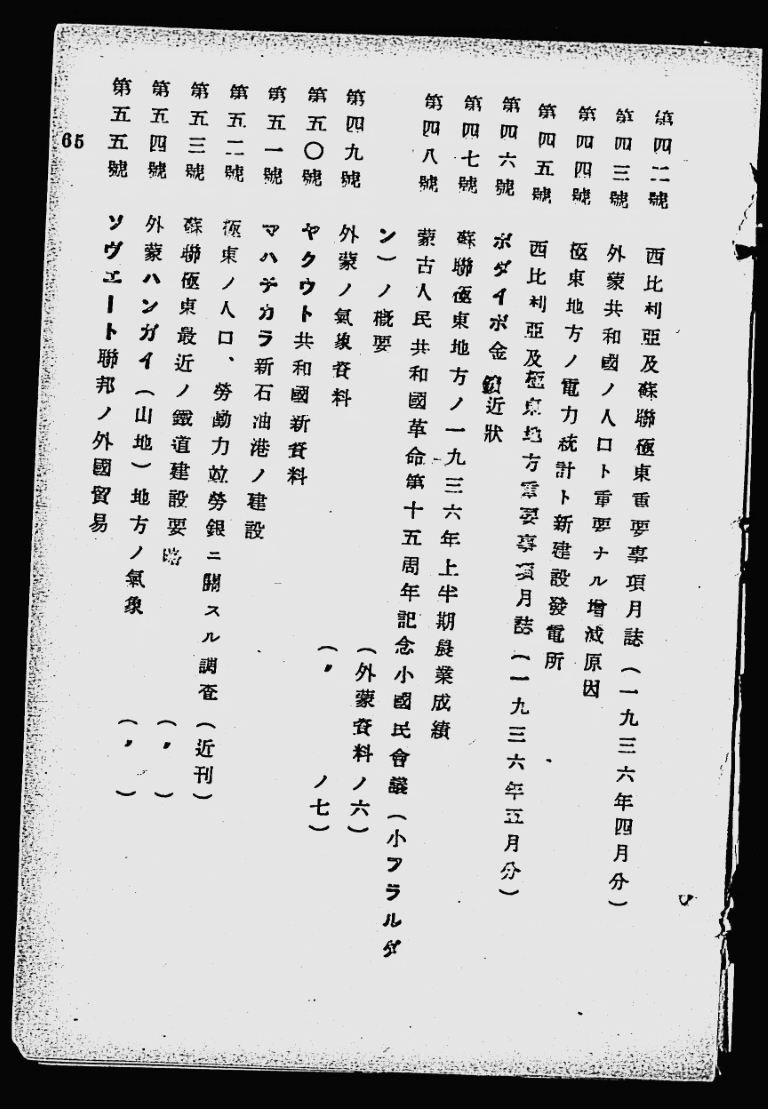 第四二號 西比利亞及蘇聯極東重要事項月誌（一九三六年四月分）
第四三號 外蒙共和國ノ人口ト重要ナル增減原因
第四四號 極東地方ノ電力統計ト新建設發電所
第四五號 西比利亞及極東地方重要事項月誌（一九三六年五月分）
第四六號 ボダイボ金鑛近狀
第四七號 蘇聯極東地方ノ一九三六年上半期農業成績
第四八號 蒙古人民共和國革命第十五周年記念小國民會議（小フラルダ
ン）ノ概要
第四九號 外蒙ノ氣象資料 （外蒙資料ノ六）
第五〇號 ヤクウト共和國新資料 （〃ノ七）
第五一號 マハチカラ新石油港ノ建設
第五二號 極東ノ人口、勞働力竝勞銀ニ關スル調查（近刊）
第五三號 蘇聯極東最近ノ鐵道建設要略 （〃）
第五四號 外蒙ハンガイ（山地）地方ノ氣象 （〃）
第五五號 ソヴエート聯邦ノ外國貿易
65